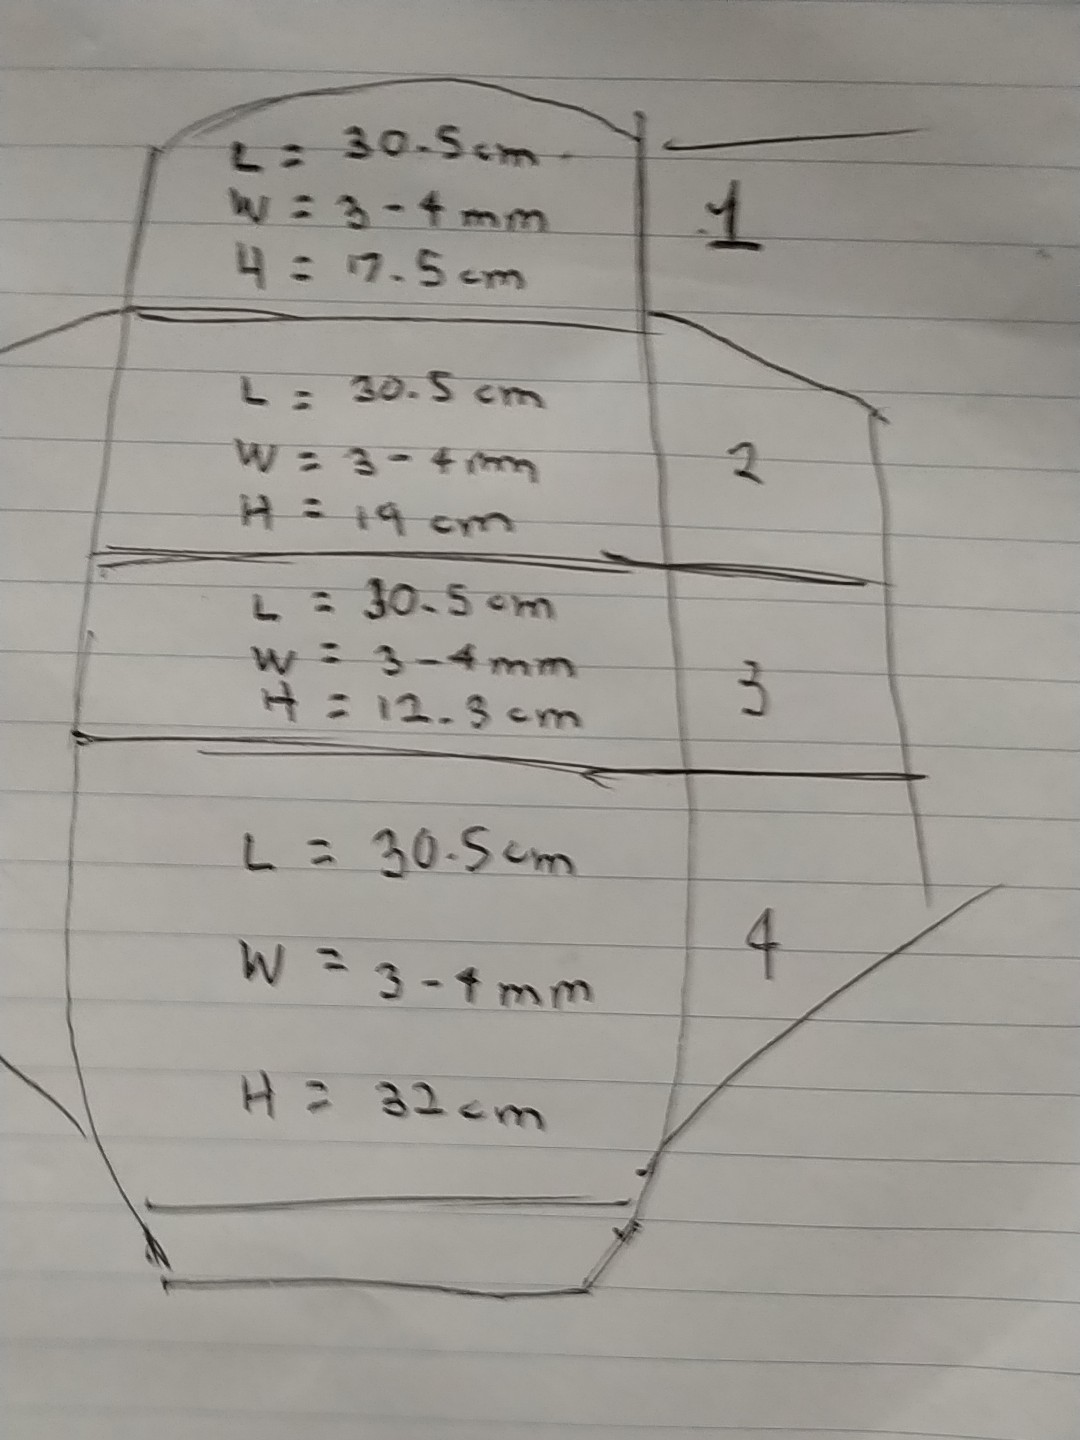 L = 30.5cm
W = 3-4mm
H = 17.5cm
1
L = 30.5 cm
W = 3-4mm
H = 19 cm
2
L = 30.5cm
W = 3-4mm
H = 12.3 cm
3
L = 30.5cm
W = 3-4mm
H = 32cm
4